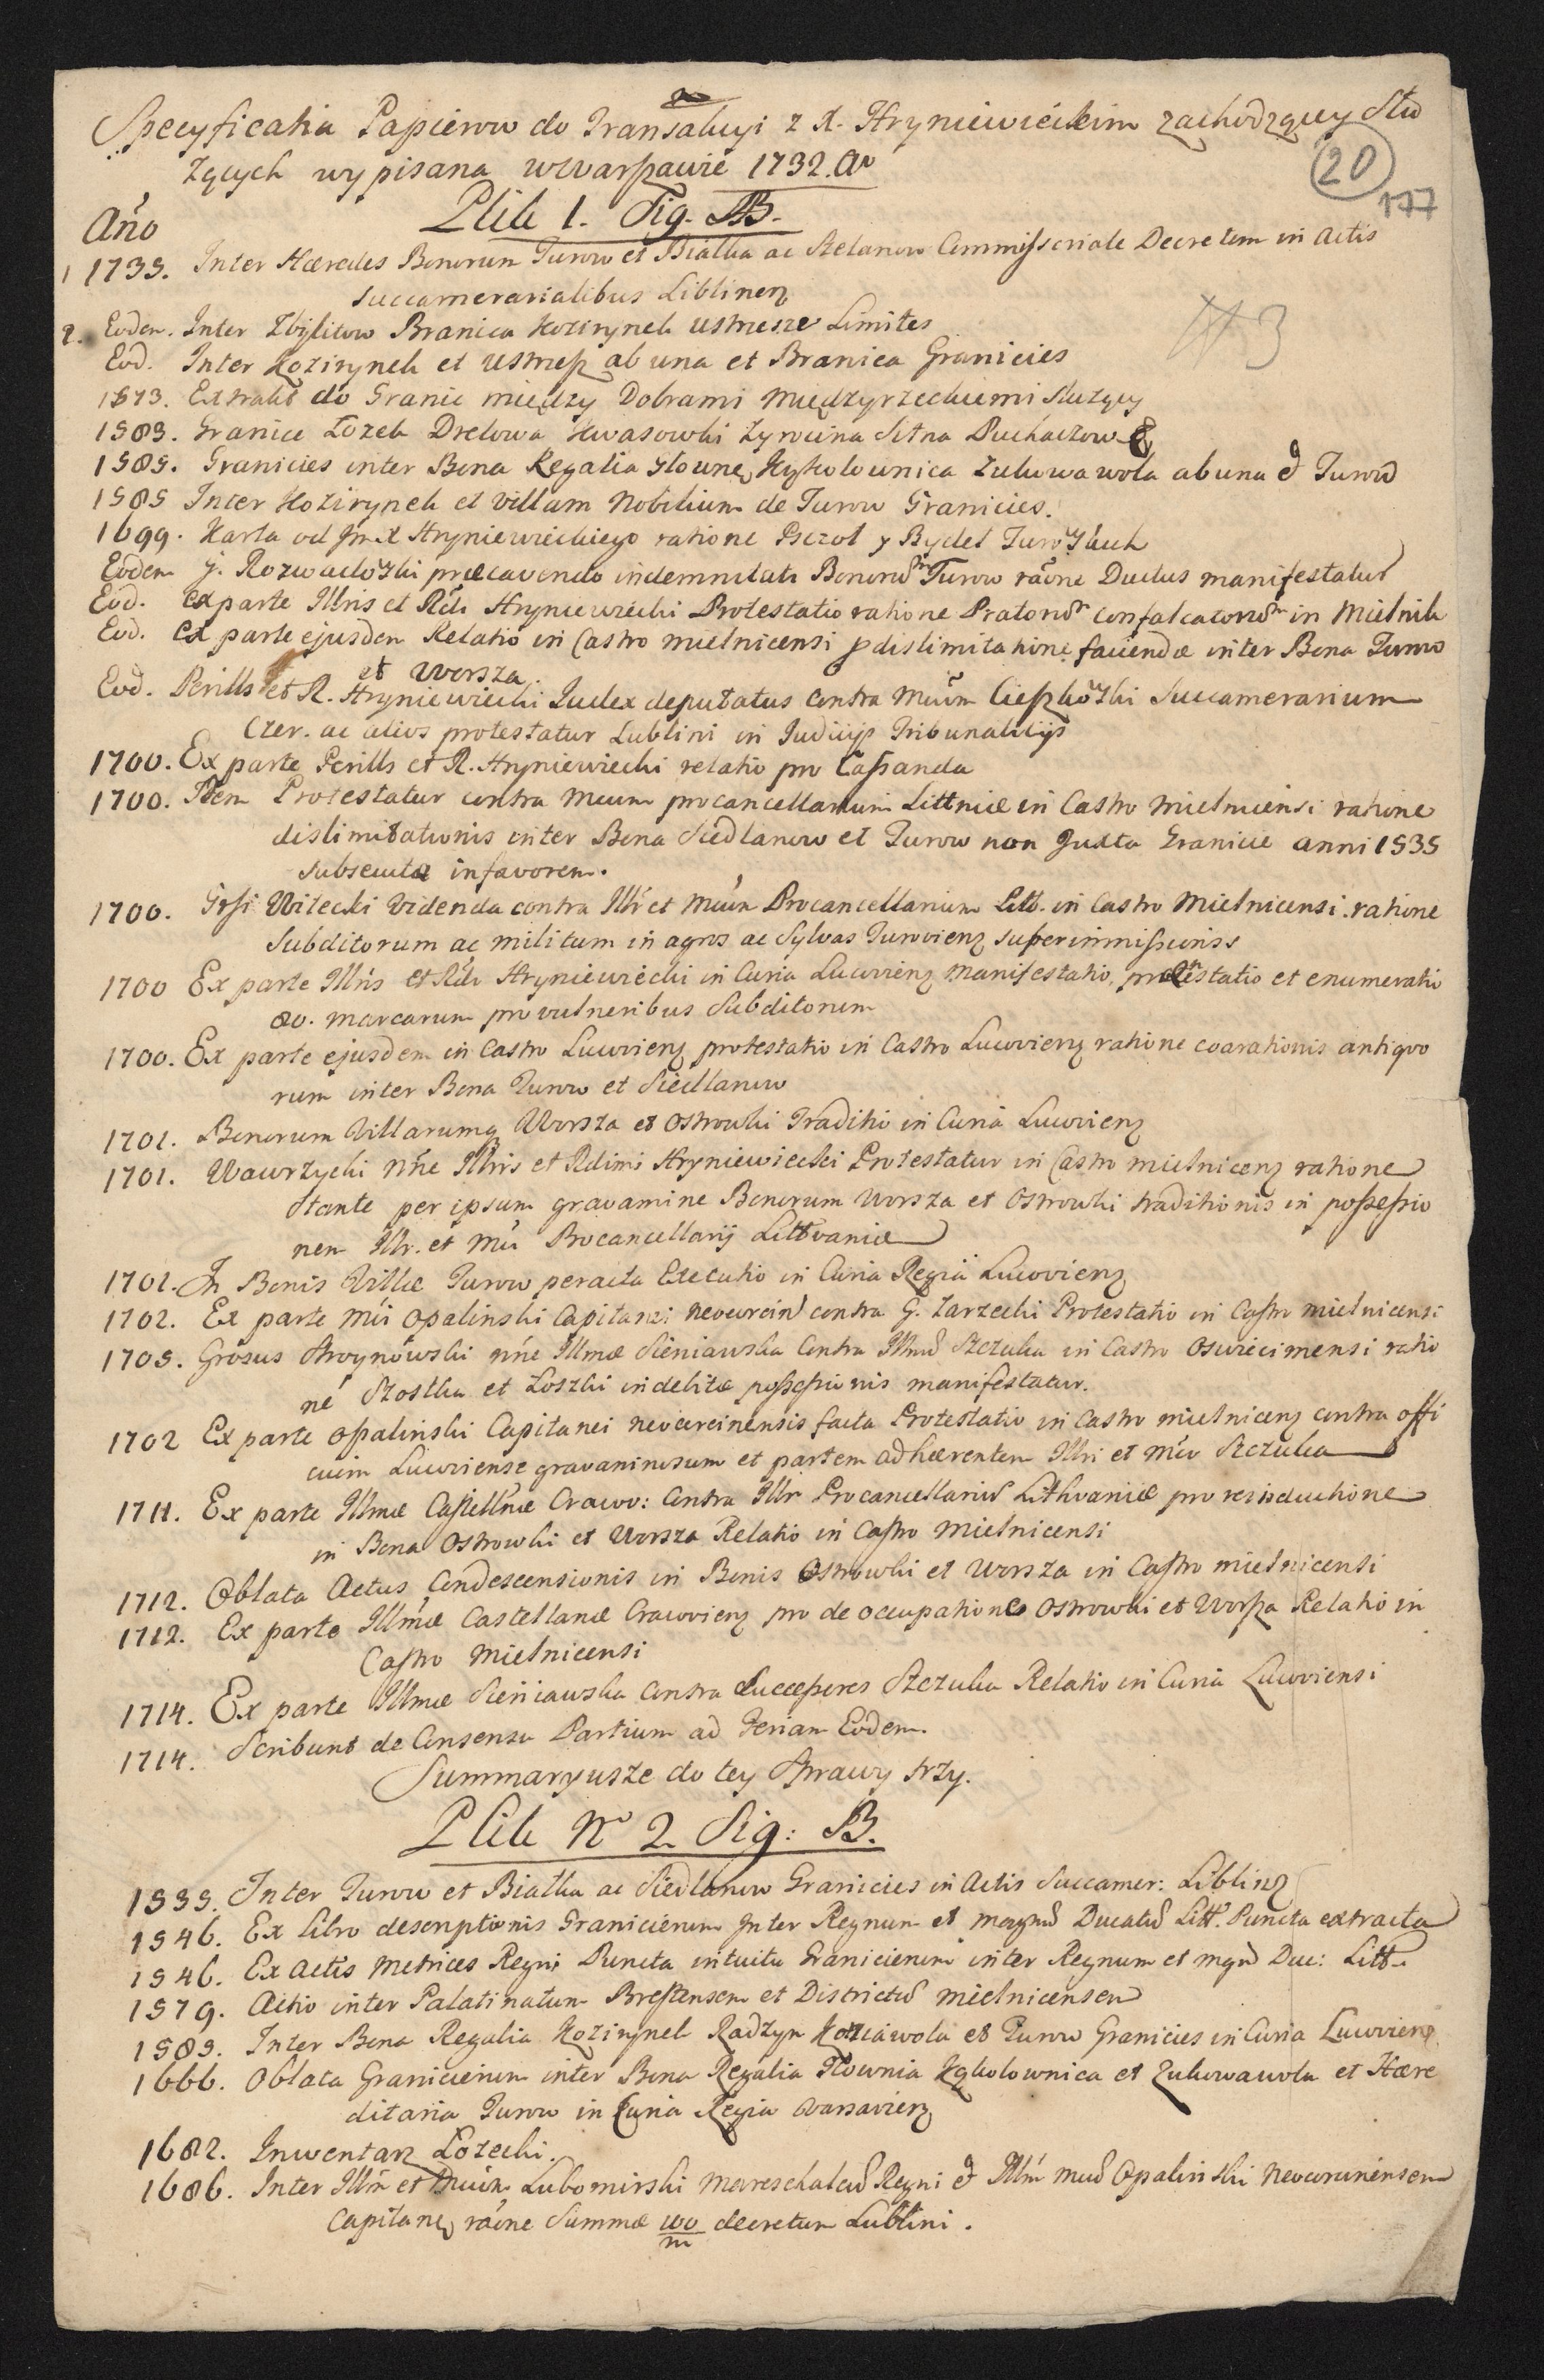 Specyficatia Papierow do Transakcyi z X. Hryniewieckim zachodzącey Słu
żących wypisana w Warszawie 1732. Ao
20
177
Plik 1. Sig. AB.
Año
1 1735. Inter Hæredes Bonorum Turow et Białka ac Siedlanow Commissoriale Decretum in Actis
Succamerarialibus Liblinenz
2. Eodem. Inter Zbylitow Branica Kozirynek Ustrzesze Limites
#3
Eod. Inter Kozirynek et Ustrzesz ab una et Branica Granicies
1573. Extrakt do Granic między Dobrami Międzyrzeckiemi służący
1583. Granice Łozek Drelowa Kwasowki Zyrocina Sitna Puchaczow
1585. Granicies inter Bona Regalia Płowne, Kąkolownica Zulowawola ab una et Turow
1585 Inter Kozirynek et Villam Nobilium de Turow Granicies.
1699. Karta od Jmx Hryniewieckiego ratione Pszczol y Bydeł Turowskich
Eodem G. Rozwadowski præcavendo indemnitati Bonorum Turow raõne Ductus manifestatur
Eod. Ex parte Illris et Rdi Hryniewiecki Protestatio ratione Pratorum confalcatorum in Mielnik
Eod. ex parte ejusdem Relatio in Castro mielnicensi p dislimitatione facienda inter Bona Turow
et Worsza.
Eod. Perills et R. Hryniewiecki Iudex deputatus contra Mcum Cieszkowski Succamerarium
Czer. ac alios protestatur Lublini in Iudicijs Tribunalitijs
1700. Ex parte Perills et R. Hryniewiecki relatio pro Cassanda
1700. Idem Protestatur contra Mcum procancellarium Littniæ in Castro mielnicensi ratione
dislimitationis inter Bona Siedlanow et Turow non Juxta Granicie anni 1535
subsecuta in favorem.
1700. Grsi Witecki Videnda contra Illr et Mcum Procancellarium Litt. in Castro Mielnicensi ratione
Subditorum ac militum in agros ac Sylvas Turovienz superimmissionis
1700 Ex parte Illris et Rdi Hryniewiecki in Curia Lucovienz Manifestatio, protestatio et enumeratio
80. marcarum pro vulneribus Subditorum
1700. Ex parte ejusdem in Castro Lucovienz protestatio in Castro Lucovienz ratione coarationis antiquo
rum inter Bona Turow et Siedlanow
1701. Bonorum Villarumq Worsza et Ostrowki Traditio in Curia Lucovienz
1701. Wawrzycki nñe Illris et Rdimi Hryniewiecki Protestatur in Castro mielnicenz ratione
stante per ipsum gravamine Bonorum Worsza et Ostrowki traditionis in possessio
nem Illr. et Mci Procancellarij Littvaniæ
1701. In Bonis Villæ Turow peracta Executio in Curia Regia Lucovienz
1702. Ex parte Mci Opalinski Capitanei neocorcin contra G. Zarzecki Protestatio in Castro mielnicensi
1705. Grosus Stroynowski nñe Illmæ Sieniawska Contra Illmum Szczuka in Castro Oswiecimensi ratio
ne Szostka et Loszki indebitæ possessionis manifestatur.
1702 Ex parte Opalinski Capitanei neocorcinensis facta Protestatio in Castro mielnicenz contra offi
cium Lucoviense gravaminosum et partem adhærentem Illri et Mco Szczuka
1711. Ex parte Illmæ Castellnæ Cracov: Contra Illr Procancellarium Lithvaniæ pro reinductione
in Bona Ostrowki et Worsza Relatio in Castro Mielnicensi
1712. Oblata Actus Condescensionis in Bonis Ostrowki et Worsza in Castro mielnicensi
1712. Ex parte Illmæ Castellanæ Cracovienz pro de occupatione Ostrowki et Worsza Relatio in
Castro Mielnicensi
1714. Ex parte Illmæ Sieniawska Contra Successores Szczuka Relatio in Curia Lucoviensi
1714. Scribunt de Consensu Partium ad Terian Eodem.
Summaryusze do tey Sprawy trzy.
Plik No 2 Sig: B.
1535. Inter Turow et Białka ac Siedlanow Granicies in Actis Succamer: Liblinz
1546. Ex libro descriptionis Granicierum Inter Regnum et magnum Ducatum Litt. Puncta extracta
1546. Ex Actis Metrices Regni Puncta intuitu Granicierum inter Regnum et mgnum Duc: Litt.
1579. Actio inter Palatinatum Brestensem et Districtum mielnicensem
1585. Inter Bona Regalia Kozirynek Radzyn Kozia wola et Turow Granicies in Curia Lucovienz
1666. Oblata Granicierum inter Bona Regalia Płownia Kąkolownica et Zulowawola et Hære
ditaria Turow in Curia Regia Varsavienz
1682. Inwentarz Łozecki.
1686. Inter Illm et Mcum Lubomirski Mareschalcum Regni et Illm Mcum Opalinski Neocorcinensem
Capitaneum raõne Summæ 100/m decretum Lublini.